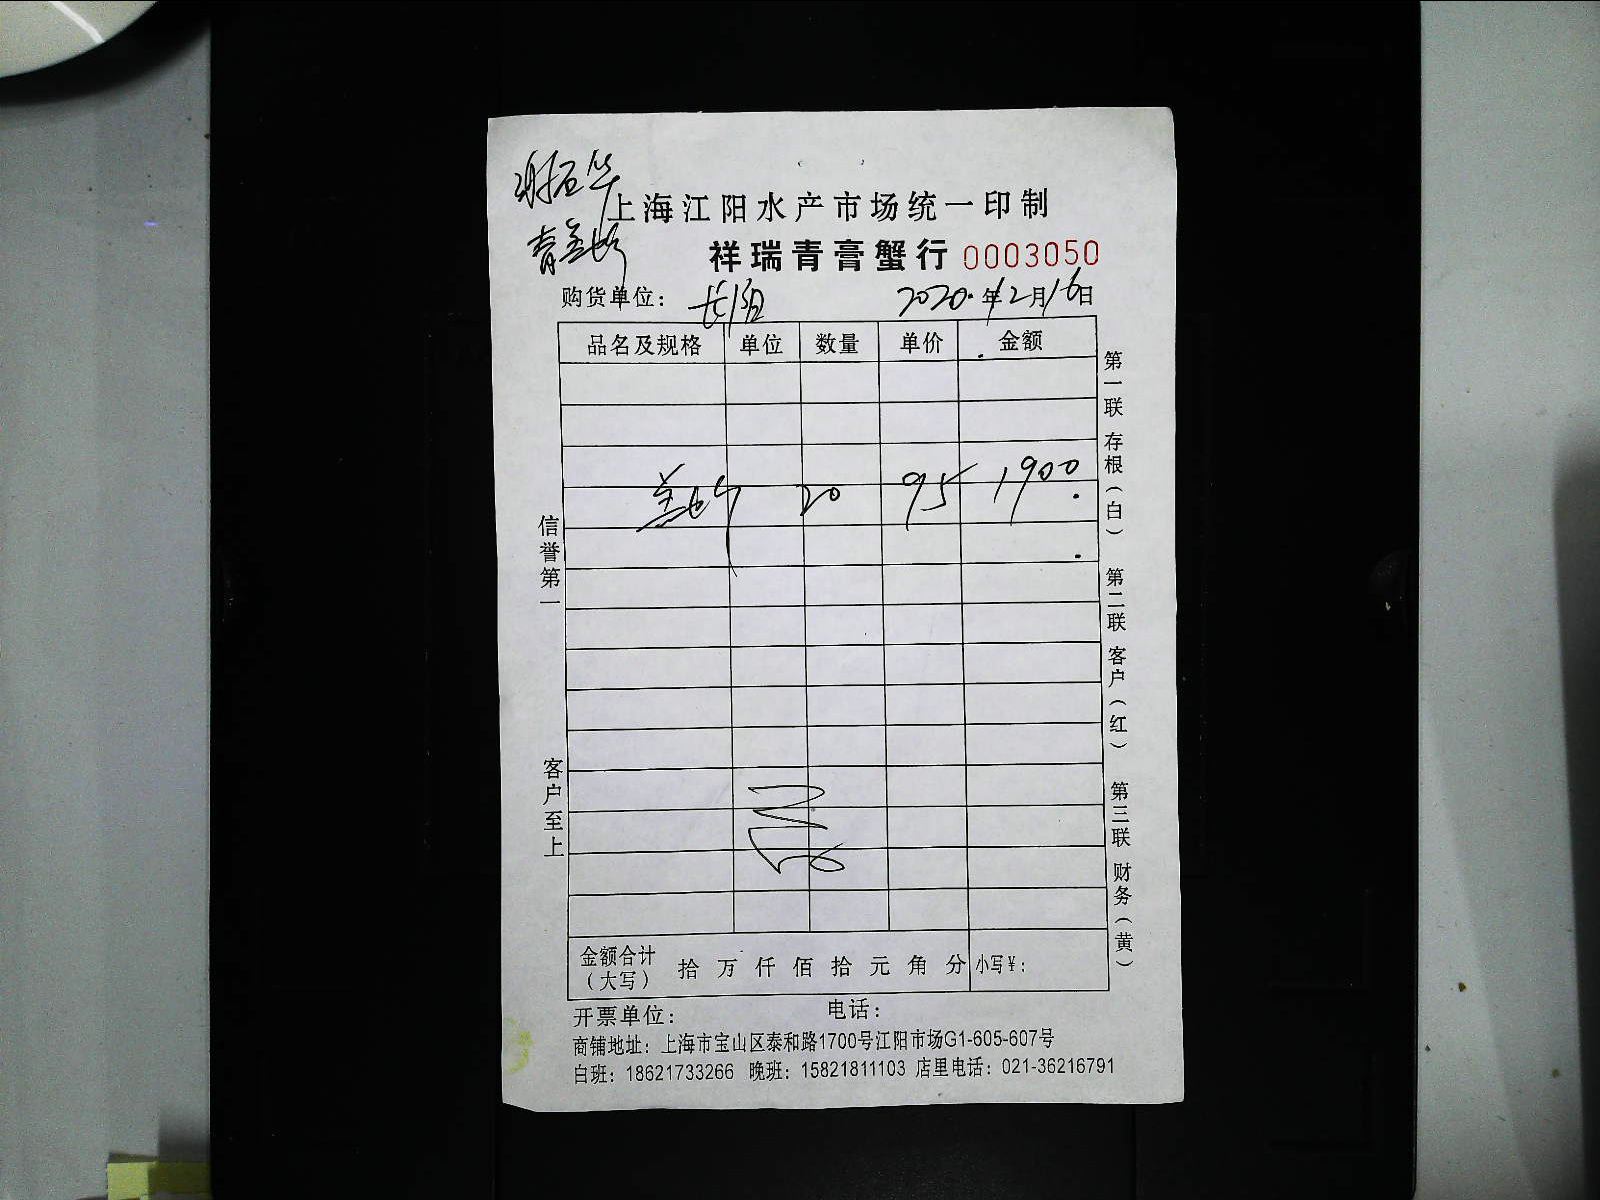 上海江阳水产市场统一印制
祥瑞青膏蟹行 0003050
购货单位： 长阳 2020.年12月16日
品名及规格 单位 数量 单价 金额
20 95 1900.
信誉第一
客户至上
第一联 存根（白）
第二联 客户（红）
第三联 财务（黄）
金额合计（大写） 拾 万 仟 佰 拾 元 角 分 小写￥：
开票单位： 电话：
商铺地址：上海市宝山区泰和路1700号江阳市场G1-605-607号
白班：18621733266 晚班：15821811103 店里电话：021-36216791